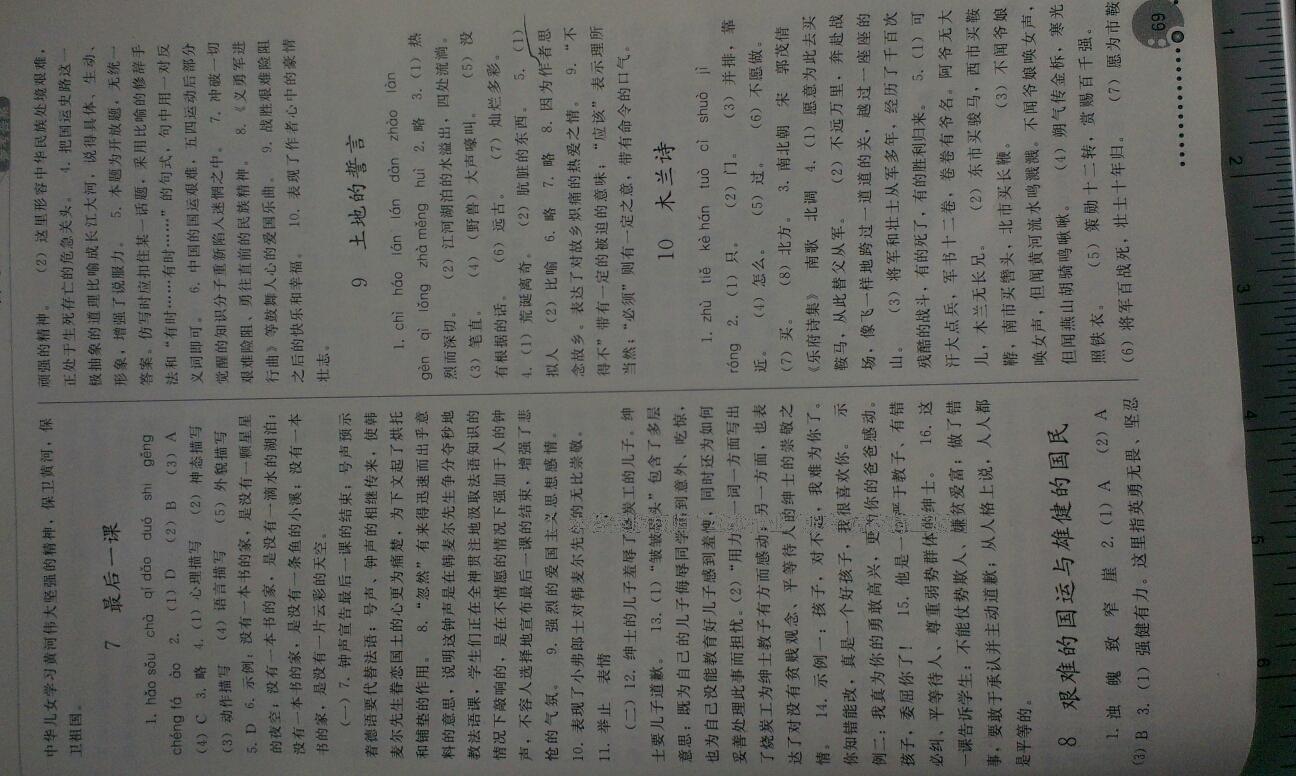 中华儿女学习黄河伟大坚强的精神，保卫黄河，保
卫祖国。
7 最后一课
1. hǎo sǒu chà qì dào duó shi gěng
chéng fá ào 2. (1) D (2) B (3) A
(4) C 3. 略 4. (1) 心理描写 (2) 神态描写
(3) 动作描写 (4) 语言描写 (5) 外貌描写
5. D 6. 示例：没有一本书的家，是没有一颗星星
的夜空；没有一本书的家，是没有一滴水的湖泊；
没有一本书的家，是没有一条鱼的小溪；没有一本
书的家，是没有一片云彩的天空。
(一) 7. 钟声宣告最后一课的结束；号声预示
着德语要代替法语；号声、钟声的相继传来，使韩
麦尔先生眷恋国土的心更为痛楚，为下文起了烘托
和铺垫的作用。 8. “忽然”有来得迅速而出乎意
料的意思，说明这钟声是在韩麦尔先生争分夺秒地
教法语课，学生们正在全神贯注地汲取法语知识的
情况下敲响的，是在不情愿的情况下强加于人的钟
声，不容人选择地宣布最后一课的结束，增强了悲
怆的气氛。 9. 强烈的爱国主义思想感情。
10. 表现了小弗郎士对韩麦尔先生的无比崇敬。
11. 举止 表情
(二) 12. 绅士的儿子羞辱了烧炭工的儿子。绅
士要儿子道歉。 13. (1) “皱皱眉头”包含了多层
意思：既为自己的儿子侮辱同学感到意外、吃惊，
也为自己没能教育好儿子感到羞愧，同时还为如何
妥善处理此事而担忧。(2) “用力”一词一方面写出
了烧炭工为绅士教子有方而感动；另一方面，也表
达了对没有贫贱观念、平等待人的绅士的崇敬之
情。 14. 示例一：孩子，对不起，我难为你了。
你知错能改，真是一个好孩子，我很喜欢你。 示
例二：我真为你的勇敢高兴，更为你的爸爸感动。
孩子，委屈你了！ 15. 他是一个严于教子、有错
必纠、平等待人、尊重弱势群体的绅士。 16. 这
一课告诉学生：不能仗势欺人、嫌贫爱富；做了错
事，要敢于承认并主动道歉；从人格上说，人人都
是平等的。
8 艰难的国运与雄健的国民
1. 浊 魄 致 窄 崖 2. (1) A (2) A
(3) B 3. (1) 强健有力。这里指英勇无畏、坚忍
顽强的精神。 (2) 这里形容中华民族处境艰难，
正处于生死存亡的危急关头。 4. 把国运史路这一
极抽象的道理比喻成长江大河，说得具体、生动、
形象，增强了说服力。 5. 本题为开放题，无统一
答案。仿写时应扣住某一话题，采用比喻的修辞手
法和“有时……有时……”的句式，句中用一对反
义词即可。 6. 中国的国运艰难，五四运动后部分
觉醒的知识分子重新陷入迷惘之中。 7. 冲破一切
艰难险阻、勇往直前的民族精神。 8. 《义勇军进
行曲》等鼓舞人心的爱国乐曲。 9. 战胜艰难险阻
之后的快乐和幸福。 10. 表现了作者心中的豪情
壮志。
9 土地的誓言
1. chì háo lán lán dàn zhào làn
gèn qì lǒng zhà měng huì 2. 略 3. (1) 热
烈而深切。 (2) 江河湖泊的水溢出，四处流淌。
(3) 笔直。 (4) (野兽) 大声嚎叫。 (5) 没
有根据的话。 (6) 远古。 (7) 灿烂多彩。
4. (1) 荒诞离奇。 (2) 肮脏的东西。 5. (1)
拟人 (2) 比喻 6. 略 7. 略 8. 因为作者思
念故乡。表达了对故乡炽痛的热爱之情。 9. “不
得不”带有一定的被迫的意味；“应该”表示理所
当然；“必须”则有一定之意，带有命令的口气。
10 木兰诗
1. zhù tiě kè hán tuò cì shuò jì
róng 2. (1) 只。 (2) 门。 (3) 并排，靠
近。 (4) 怎么。 (5) 过。 (6) 不愿做。
(7) 买。 (8) 北方。 3. 南北朝 宋 郭茂倩
《乐府诗集》 南歌 北调 4. (1) 愿意为此去买
鞍马，从此替父从军。 (2) 不远万里，奔赴战
场，像飞一样地跨过一道道的关，越过一座座的
山。 (3) 将军和壮士从军多年，经历了千百次
残酷的战斗，有的死了，有的胜利归来。 5. (1) 可
汗大点兵，军书十二卷，卷卷有爷名。阿爷无大
儿，木兰无长兄。 (2) 东市买骏马，西市买鞍
鞯，南市买辔头，北市买长鞭。 (3) 不闻爷娘
唤女声，但闻黄河流水鸣溅溅。不闻爷娘唤女声，
但闻燕山胡骑鸣啾啾。 (4) 朔气传金柝，寒光
照铁衣。 (5) 策勋十二转，赏赐百千强。
(6) 将军百战死，壮士十年归。 (7) 愿为市鞍
69
1
2
3
4
5
6